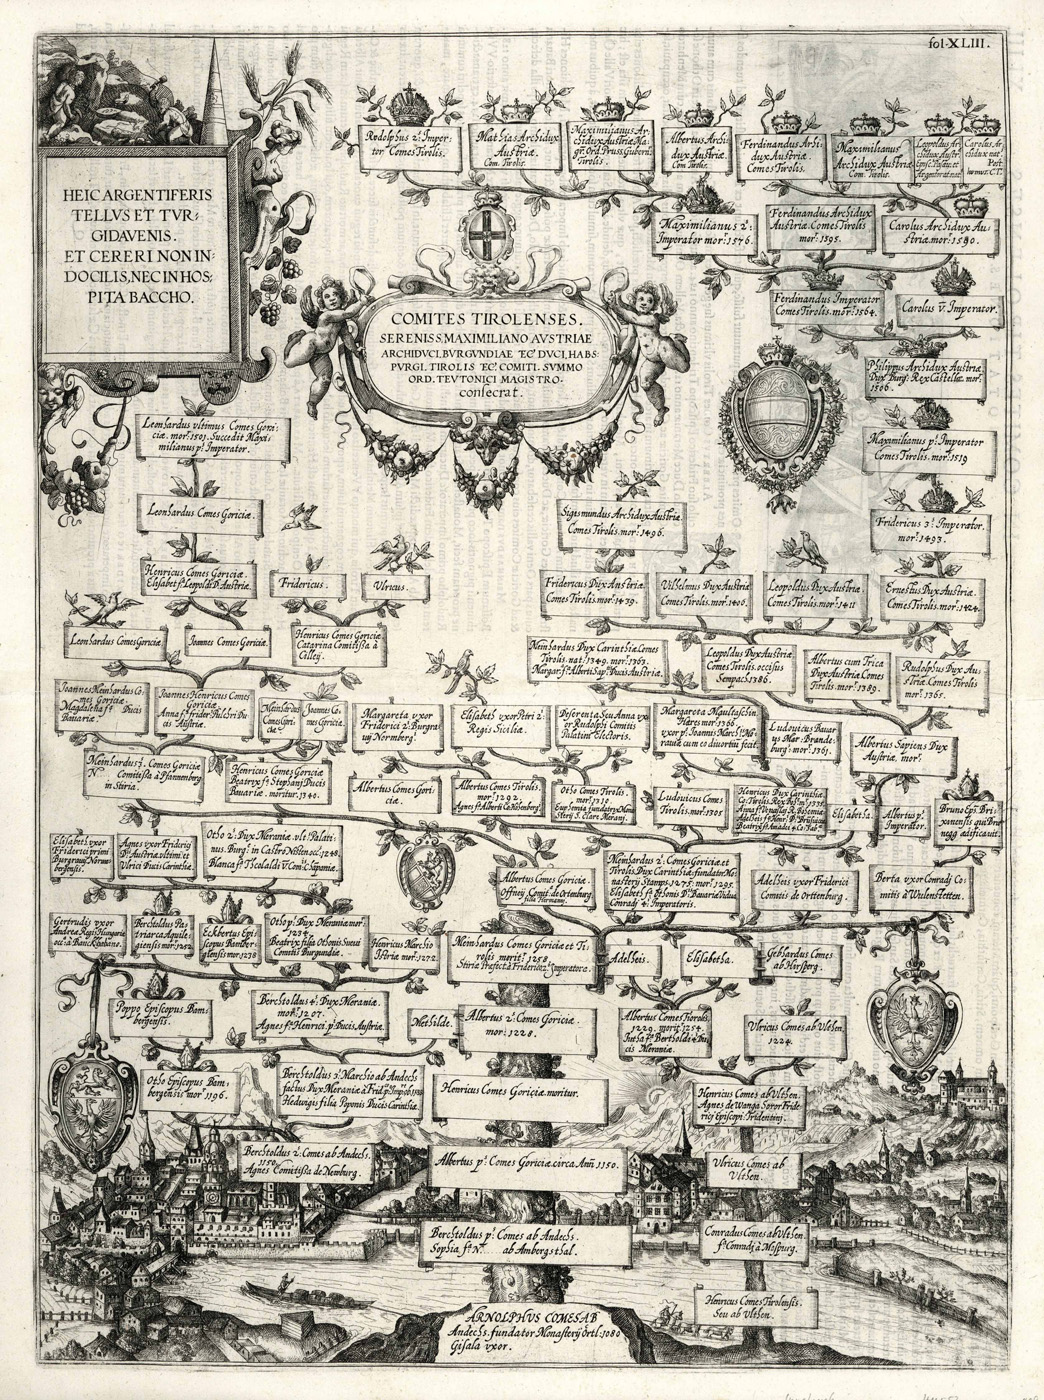 fol·XLIII.
HEIC ARGENTIFERIS
TELLVS ET TVR:
GIDA VENIS.
ET CERERI NON IN:
DOCILIS, NEC INHOS:
PITA BACCHO.
COMITES TIROLENSES.
SERENISS. MAXIMILIANO AVSTRIAE
ARCHIDVCI, BVRGVNDIAE EC? DVCI, HABS:
PVRGI. TIROLIS EC? COMITI. SVMMO
ORD. TEVTONICI MAGISTRO.
consecrat.
Rudolphus 2? Imper:
tor Comes Tirolis.
Mathias Archidux
Austriæ.
Com. Tirolis.
Maximilianus Ar:
chidux Austriæ Ma:
gr. Ord. Pruss. Gubern:
Tirolis.
Albertus Archi
dux Austriæ.
Com Tirolis.
Ferdinandus Archi:
dux Austriæ.
Comes Tirolis.
Maximilianus
Archidux Austriæ
Com. Tirolis.
Leopoldus Ar:
chidux Austr.
Carolus Ar:
chidux nat.
Post
humus. C.T.
Maximilianus 2?
Imperator mor? 1576.
Ferdinandus Archidux
Austriæ. Comes Tirolis
mor? 1595.
Carolus Archidux Au:
striæ. mor? 1590.
Ferdinandus Imperator
Comes Tirolis. mor? 1564.
Carolus V. Imperator.
Philippus Archidux Austriæ
Dux Burg: Rex Castellæ. mor?
1506.
Maximilianus p? Imperator
Comes Tirolis. mor? 1519
Fridericus 3? Imperator.
mor? 1493.
Leonhardus vltimus Comes Gori:
ciæ. mor? 1501. Succedit Maxi:
milianus p? Imperator.
Leonhardus Comes Goriciæ.
Sigismundus Archidux Austriæ
Comes Tirolis. mor? 1496.
Henricus Comes Goriciæ.
Elisabet f? Leopoldi D. Austriæ.
Fridericus.
Vlricus.
Fridericus Dux Austriæ
Comes Tirolis. mor? 1439.
Vilhelmus Dux Austriæ
Comes Tirolis. mor? 1406.
Leopoldus Dux Austriæ
Comes Tirolis. mor? 1411
Ernestus Dux Austriæ
Comes Tirolis. mor? 1424.
Leonhardus Comes Goriciæ.
Joannes Comes Goriciæ.
Henricus Comes Goriciæ
Catarina Comitissa à
Cilleij.
Meinhardus Dux Carinthiæ Comes
Tirolis nat? 1349. mor? 1363.
Margar? f? Alberti Sap? Ducis Austriæ.
Leopoldus Dux Austriæ
Comes Tirolis. occisus
Sempach. 1386.
Albertus cum Trica
Dux Austriæ Comes
Tirolis. mor? 1389.
Rudolphus Dux Au:
striæ Comes Tirolis
mor? 1365.
Joannes Meinhardus Co:
mes Goriciæ.
Magdalena f? Ducis
Bavariæ.
Joannes Henricus Comes
Goriciæ
Anna f? Frider Pulchri Du
cis Austriæ.
Meinhardus
Comes Gori:
ciæ
Joannes Co:
mes Goriciæ.
Margareta vxor
Friderici 2? Burgra:
vij Normberg?
Elisabeth vxor Petri 2?
Regis Siciliæ.
Deserenta Seu Anna vx:
or Rudolphi Comitis
Palatini Electoris.
Margareta Maultaschin
Hæres mor? 1366.
vxor p? Joannis March? Mo:
raviæ cum eo divortiū fecit.
Ludovicus Bavar
us Mar: Brande:
burg? mor? 1361.
Albertus Sapiens Dux
Austriæ. mor?
Meinhardus Comes Goriciæ.
N. Comitissa à Pfannenberg
in Stiria.
Henricus Comes Goriciæ
Beatrix f? Stephani Ducis
Bavariæ. moritur. 1340.
Albertus Comes Gori:
ciæ.
Albertus Comes Tirolis.
mor? 1292.
Agnes f? Alberti C?
Otho Comes Tirolis.
mor? 1310.
Ludovicus Comes
Tirolis. mor? 1305
Henricus Dux Carinthiæ
Elisabetha.
Albertus p?
Imperator.
Bruno Ep? Bri:
xinensis qui Bru:
negg ædificavit.
Elisabet vxor
Friderici primi
Burgravij Norm:
bergensis.
Agnes vxor Friderici
D? Austriæ vltimi et
Vlrici Ducis Carinthiæ.
Otho 2? Dux Meraniæ. vlt? Palati:
nus. Burg? in Castro Nisten occ? 1248.
Blanca f? Theobaldi V. Com. C?
Albertus Comes Goriciæ.
Meinhardus 2? Comes Goriciæ et
Tirolis Dux Carinthiæ. fundator Mo:
nasterij Stamps 1275. mor? 1295.
Elisabet f? Othonis D? Bavariæ Vidua
Conradi 4? Imperatoris.
Adelheis vxor Friderici
Comitis de Orttenburg.
Berta vxor Conradi Co:
mitis à Wulenstetten.
Gertrudis vxor
Andreæ Regis Hungariæ
occ? à Banck Cabano.
Bertholdus Pa:
triarca Aquile:
giensis mor? 1252
Eckbertus Epi:
scopus Bamber:
gensis mor? 1238
Otho p? Dux Meraniæ mor?
1234.
Beatrix filia Othonis Suevi
Comitis Burgundiæ.
Henricus Marchio
Istriæ mor? 1272.
Meinhardus Comes Goriciæ et Ti:
rolis morit? 1258.
Adelheis.
Elisabetha.
Gebhardus Comes
ab Hirsperg.
Poppo Episcopus Bam:
bergensis.
Berchtoldus 4? Dux Meraniæ.
mor? 1207.
Agnes f? Henrici p? Ducis Austriæ.
Mathilde.
Albertus 2? Comes Goriciæ.
mor? 1228.
Albertus Comes Tirolis
1229. morit? 1254.
Jutha f? Bertholdi 4? Du:
cis Meraniæ.
Vlricus Comes ab Vlthen.
1224.
Otho Episcopus Bam:
bergensis mor? 1196.
Berchtoldus 3? Marchio ab Andechs
factus Dux Meraniæ à Frid? p? Imp?
Hedwigis filia Poponis Ducis Carinthiæ.
Henricus Comes Goriciæ. moritur.
Henricus Comes ab Vlthen.
Agnes de Wanga Soror Fride:
rici Episcopi Tridentini.
Berchtoldus 2? Comes ab Andechs.
1150.
Agnes Comitissa de Newburg.
Albertus p? Comes Goriciæ. circa Ann? 1150.
Vlricus Comes ab
Vlthen.
Berchtoldus p? Comes ab Andechs.
Sophia f? N. ab Ambergsthal.
Conradus Comes ab Vlthen
f? Conradi à Mosburg.
Henricus Comes Tirolensis.
Seu ab Vlthen.
ARNOLPHVS COMES AB
Andechs. fundator Monasterij Ortl: 1080
Gisala vxor.